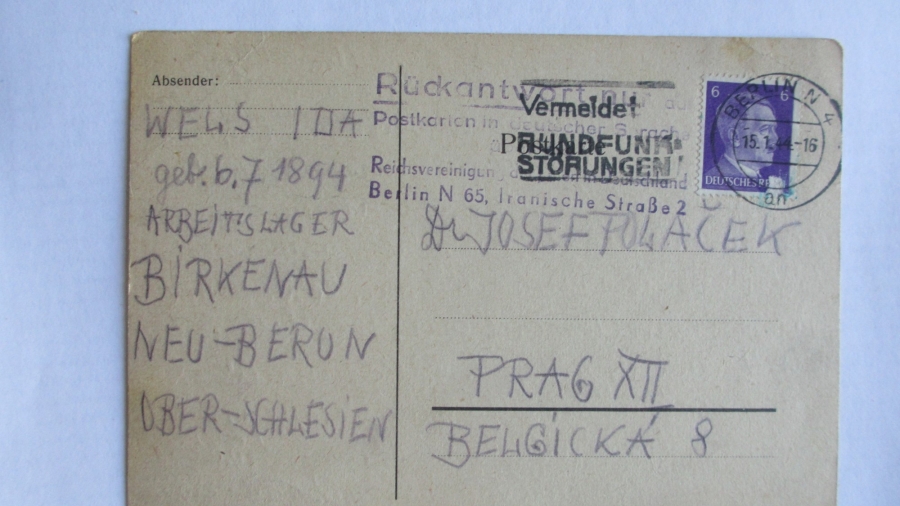 Absender:
WELS IDA
geb. 6.7 1894
ARBEITSLAGER
BIRKENAU
NEU-BERUN
OBER-SCHLESIEN
Rückantwort nur auf
Postkarten in deutscher Sprache
Postkarte
Reichsvereinigung der Juden in Deutschland
Berlin N 65, Iranische Straße 2
Vermeidet
RUNDFUNK-
STÖRUNGEN!
6 6
DEUTSCHES
BERLIN N 4
15.1.44.-16
an
Dr JOSEF POLAČEK
PRAG XII
BELGICKÁ 8